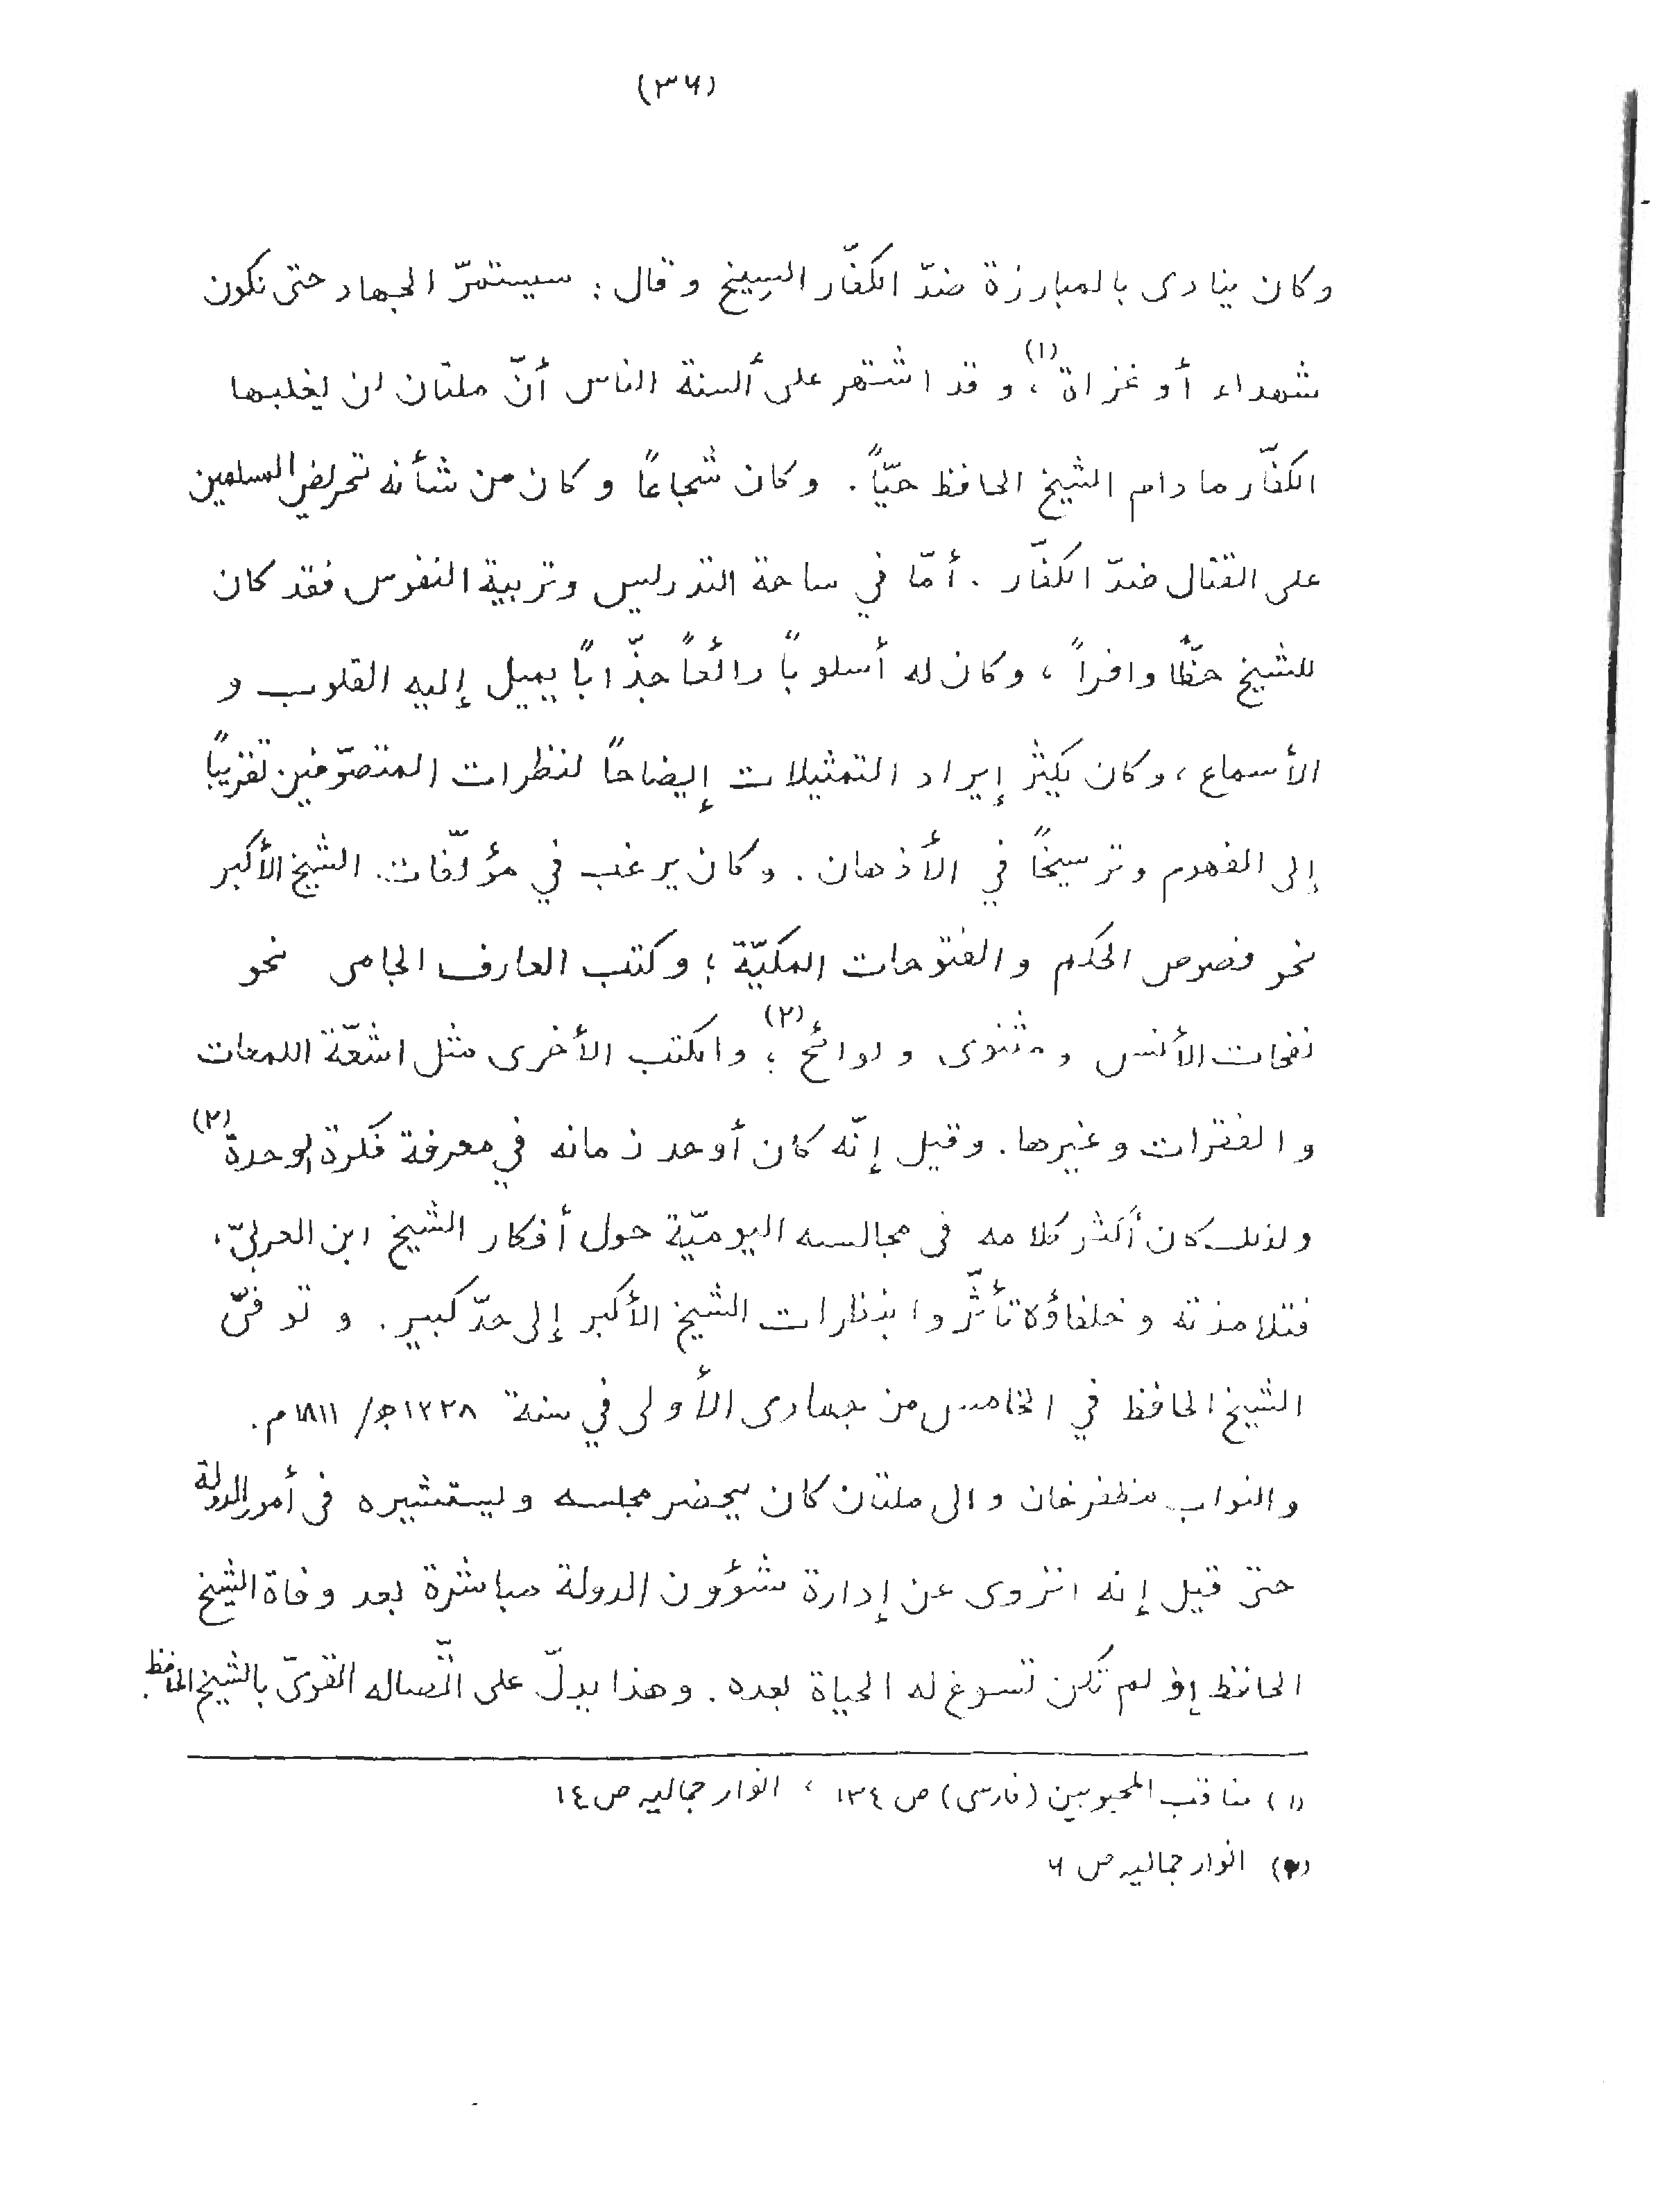 (٣٦)
وكان ينادى بالمبارزة ضدّ الكفّار السِيخ وقال : سيستمرّ الجهاد حتى نكون
شهداء أو غزاة(١)، وقد اشتهر على ألسنة الناس أنّ ملتان لن يغلبها
الكفّار مادام الشيخ الحافظ حيّاً . وكان شجاعًا وكان من شأنه تحريض المسلمين
على القتال ضدّ الكفّار . أمّا في ساحة التدريس وتربية النفوس فقد كان
للشيخ حظًّا وافراً ، وكان له أسلوباً رائعاً جذّابًا يميل إليه القلوب و
الأسماع ، وكان يكثر إيراد التمثيلات إيضاحاً لنظرات المتصوّفين تقريبًا
إلى الفهوم وترسيخًا في الأذهان . وكان يرغب في مؤلّفات الشيخ الأكبر
نحو فصوص الحكم والفتوحات المكيّة ؛ وكتب العارف الجامى نحو
نفحات الأنس ومثنوى ولوائح(٢) ؛ والكتب الأخرى مثل اشعّة اللمعات
والفقرات وغيرها . وقيل إنّه كان أوحد زمانه في معرفة فكرة الوحدة(٢)
ولذلك كان أكثر كلامه فى مجالسه اليوميّة حول أفكار الشيخ ابن العربيّ،
فتلامذته وخلفاؤه تأثّروا بنظرات الشيخ الأكبر إلى حدّ كبير . وتوفىّ
الشيخ الحافظ في الخامس من جمادى الأولى في سنة ١٢٢٨ھ/ ١٨١١م.
والنواب مظفرخان والى ملتان كان يحضر مجلسه ويستشيره فى أمور الدولة
حتى قيل إنه انزوى عن إدارة شؤون الدولة مباشرة بعد وفاة الشيخ
الحافظ إذ لم تكن تسوغ له الحياة بعده . وهذا يدلّ على اتّصاله القوىّ بالشيخ الحافظ.
(١) مناقب المحبوبين (فارسى) ص ١٣٤ ، انوار جماليه ص ١٤
(٢) انوار جماليه ص ٦